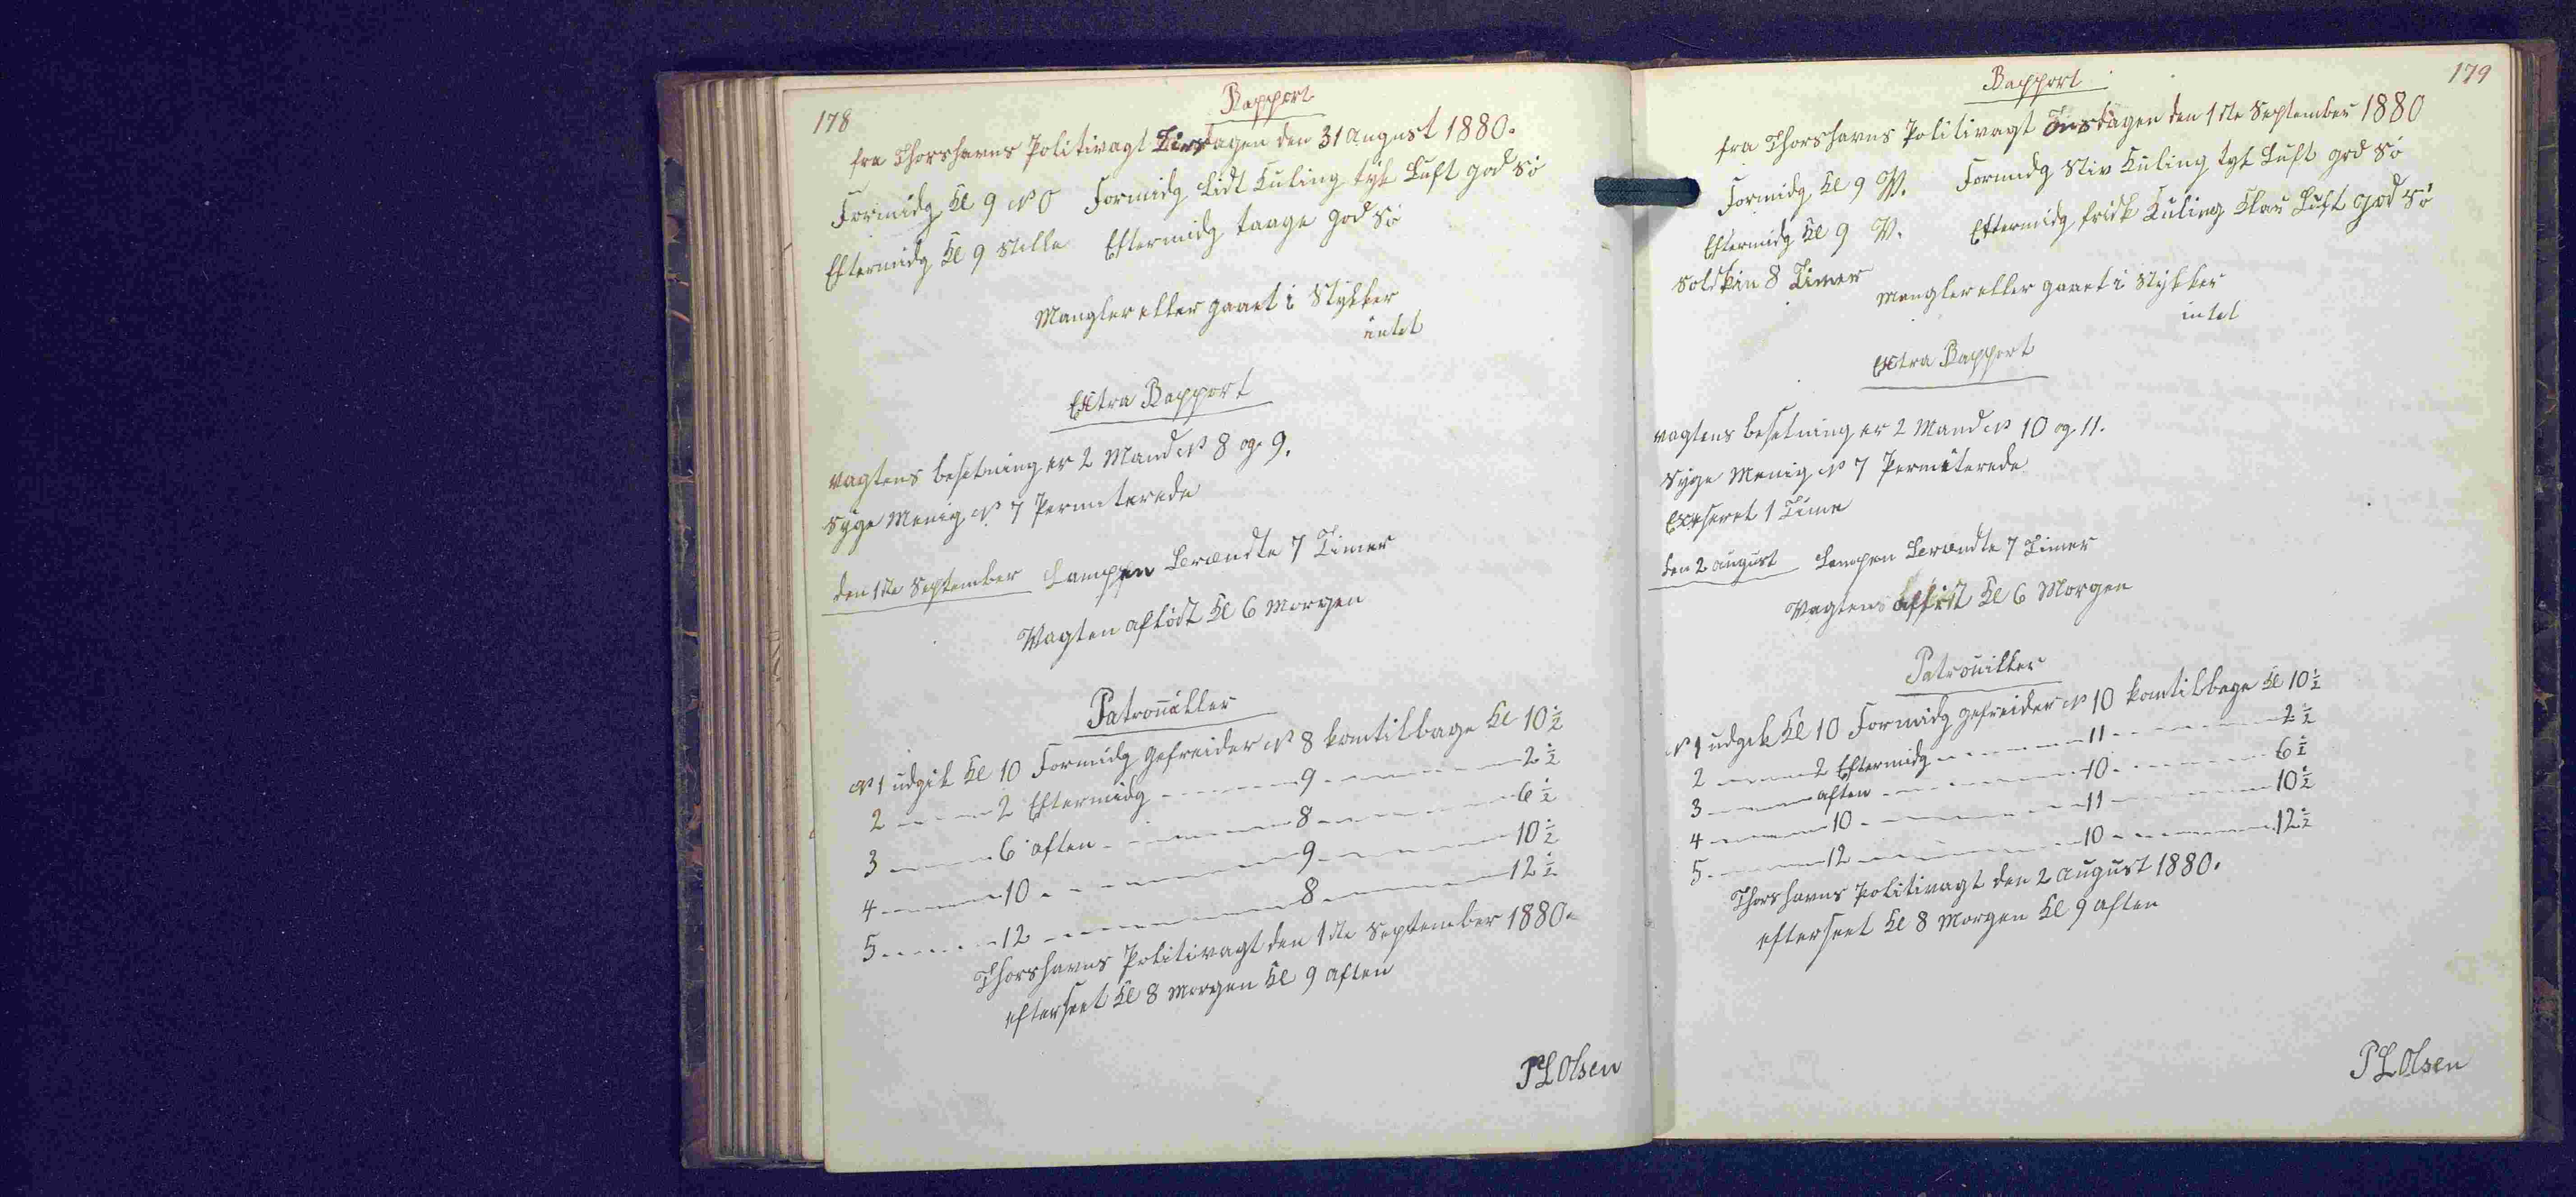 178
Rapport
fra Thorshavns Politivagt Tirsdagen den 31 August 1880.
Formidg Kl 9 N O Formidg Lidt Kuling tyk Luft god Sö
Eftermidg Kl 9 Stille Eftermidg taage god Sö
Mangler eller gaaet i Stykker
intet
Extra Rapport
Vagtens besetning er 2 Mand No 8 og 9.
Syge Menig No 7 Permiterede
den 1ste September Lampen Brændte 7 Timer
Vagten aflöst Kl 6 Morgen
Patrouiller
No 1 udgik Kl 10 Formidg Gefreider No 8 kom tilbage Kl 10 1/2
2 - - - 2 Eftermidg - - - 9 - - - 2 1/2
3 - - - 6 aften - - - 8 - - - 6 1/2
4 - - - 10 - - - 9 - - - 10 1/2
5 - - - 12 - - - 8 - - - 12 1/2
Thorshavns Politivagt den 1ste September 1880.
efterseet Kl 8 Morgen Kl 9 aften
P L Olsen
179
Rapport
fra Thorshavns Politivagt Onsdagen den 1ste September 1880
Formidg Kl 9 V. Formidg Stiv Kuling tyk Luft god Sö
Eftermidg Kl 9 V. Eftermidg frisk Kuling Klar Luft god Sö
Solskin 8 Timer
Mangler eller gaaet i Stykker
intet
Extra Rapport
Vagtens besetning er 2 Mand No 10 og 11.
Syge Menig No 7 Permiterede
Exseret 1 Time
den 2 august Lampen Brændte 7 Timer
Vagtens aflöst Kl 6 Morgen
Patrouiller
No 1 udgik Kl 10 Formidg gefreider No 10 kom tilbage Kl 10 1/2
2 - - - 2 Eftermidg - - - 11 - - - 2 1/2
3 - - - aften - - - 10 - - - 6 1/2
4 - - - 10 - - - 11 - - - 10 1/2
5 - - - 12 - - - 10 - - - 12 1/2
Thorshavns Politivagt den 2 august 1880.
efterseet Kl 8 Morgen Kl 9 aften
P L Olsen